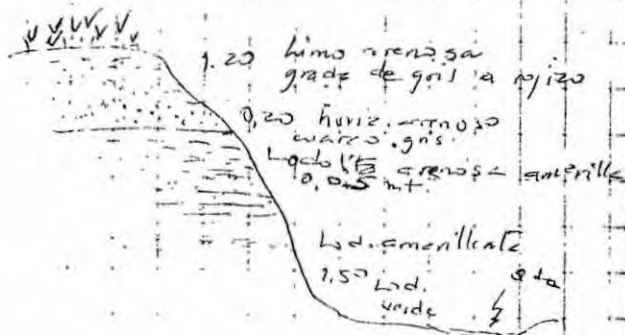 1.20 limo arenosa
grada de gris a rojizo
0,20 horiz. arenoso
waco. gris.
Lodolita arenosa amarilla
0,05 mt.
Lod. amarillenta
1.50 Lod.
verde